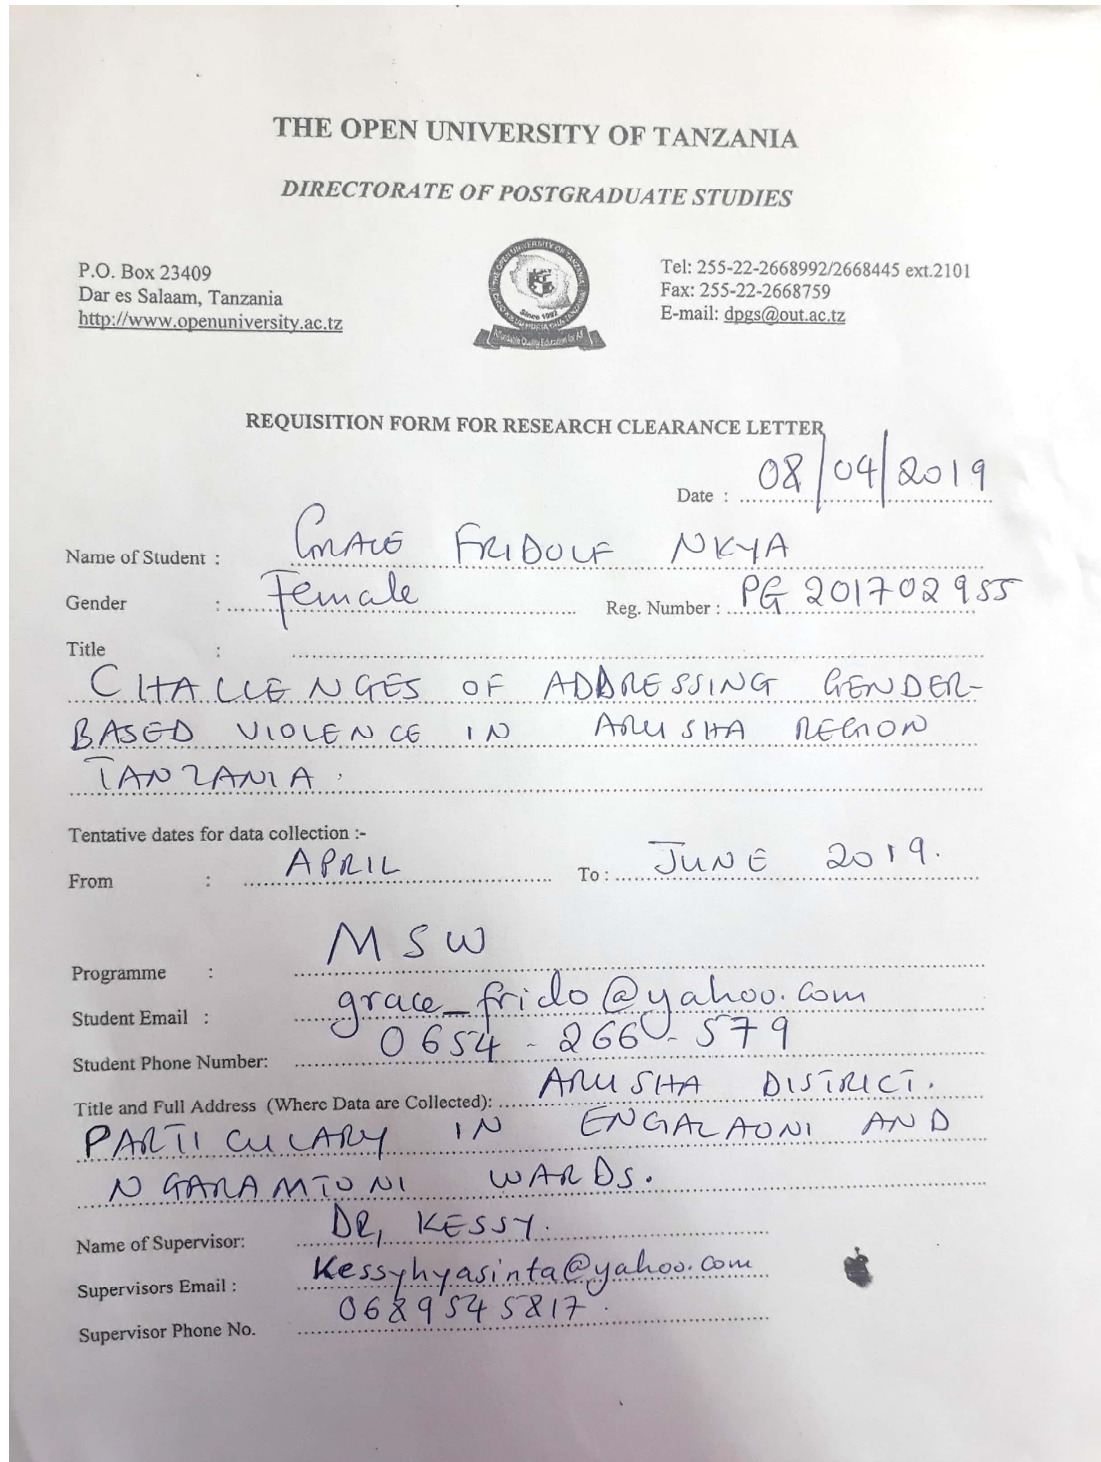 THE OPEN UNIVERSITY OF TANZANIA
DIRECTORATE OF POSTGRADUATE STUDIES
P.O. Box 23409
Dar es Salaam, Tanzania
http://www.openuniversity.ac.tz
Tel: 255-22-2668992/2668445 ext.2101
Fax: 255-22-2668759
E-mail: dpgs@out.ac.tz
Since 1992
REQUISITION FORM FOR RESEARCH CLEARANCE LETTER
Date : 08/04/2019
Name of Student : GRACE FRIDOLF NKYA
Gender : Female Reg. Number : PG 201702955
Title :
CHALLENGES OF ADDRESSING GENDER-
BASED VIOLENCE IN ARUSHA REGION
TANZANIA.
Tentative dates for data collection :-
From : APRIL To : JUNE 2019.
Programme : MSW
Student Email : grace_frido@yahoo.com
Student Phone Number: 0654-266-579
Title and Full Address (Where Data are Collected): ARUSHA DISTRICT.
PARTICULARY IN ENGALAONI AND
NGARAMTONI WARDS.
Name of Supervisor: DR, KESSY.
Supervisors Email : Kessyhyasinta@yahoo.com
Supervisor Phone No. 0689545817.